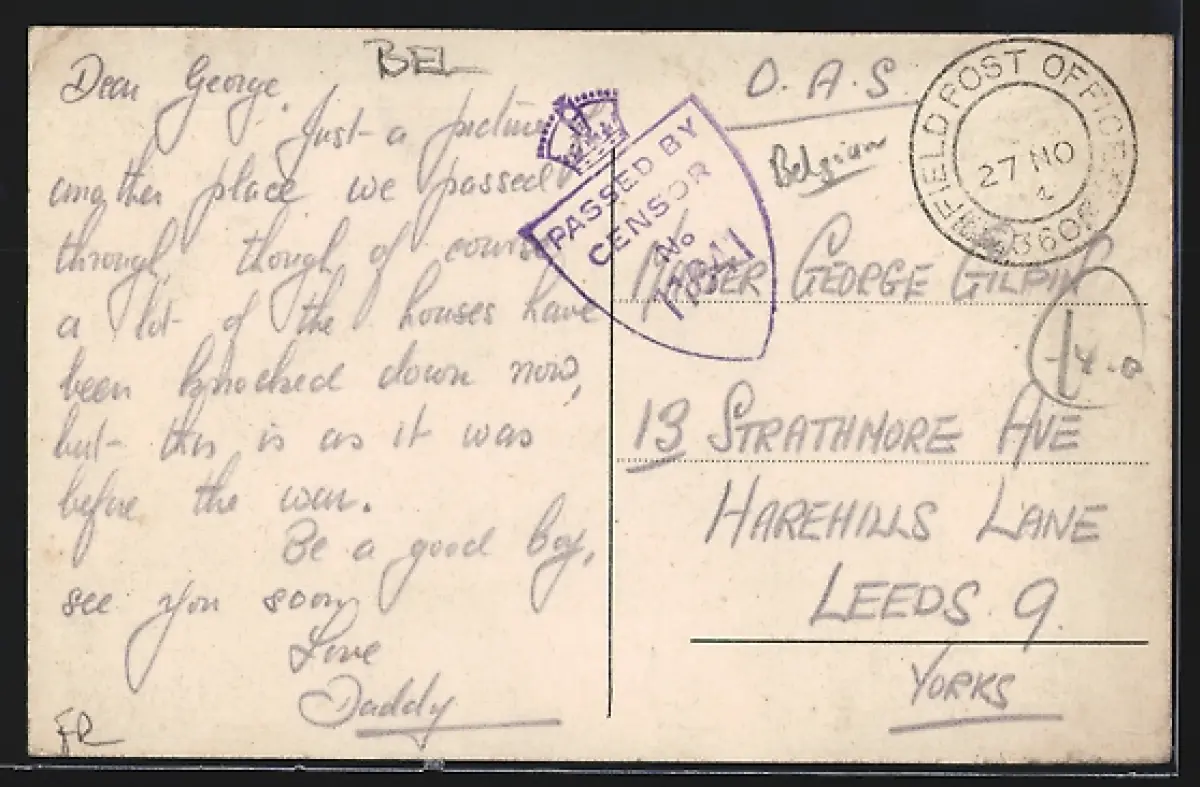 BEL
Dear George,
Just a picture
another place we passed
through, though of course
a lot of the houses have
been knocked down now,
but this is as it was
before the war.
Be a good boy,
see you soon
Love
Daddy
FR
PASSED BY
CENSOR
No
O.A.S.
Belgian
FIELD POST OFFICE
27 NO
MASTER GEORGE GILPIN
13 STRATHMORE AVE
HAREHILLS LANE
LEEDS 9.
YORKS